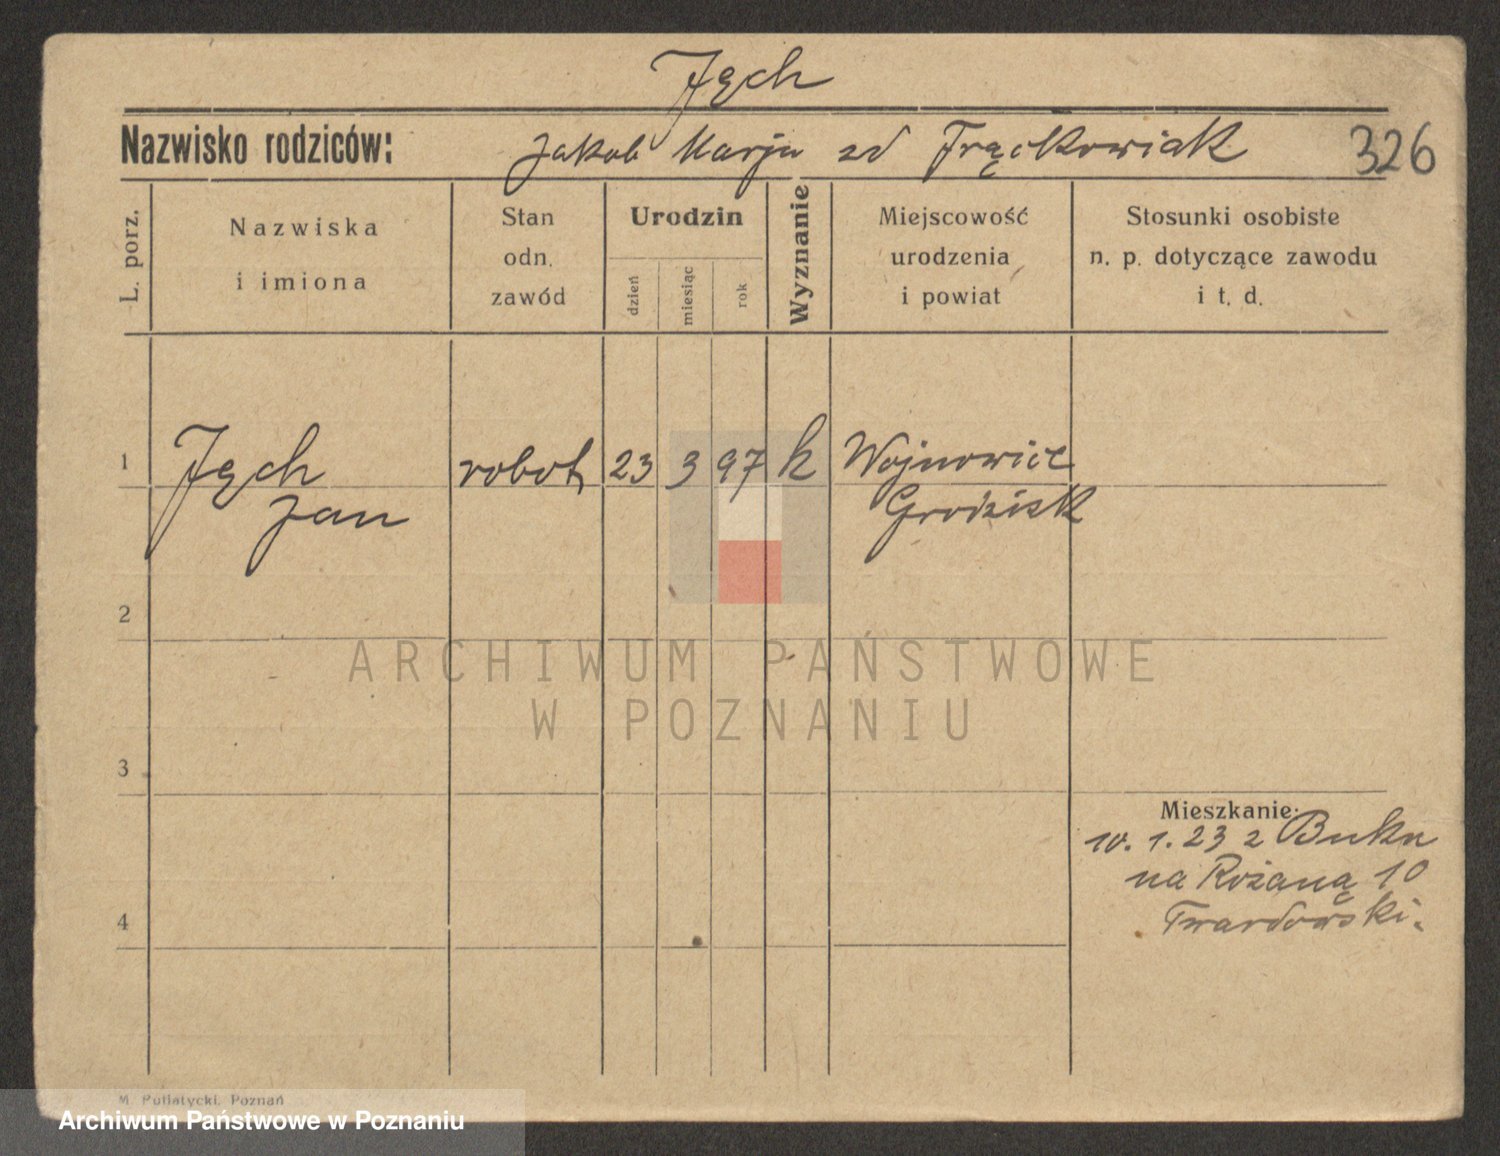 Jęch
Nazwisko rodziców: Jakob Marja zd Frąckowiak 326
L. porz.
Nazwiska
i imiona
Stan
odn.
zawód
Urodzin
dzień
miesiąc
rok
Wyznanie
Miejscowość
urodzenia
i powiat
Stosunki osobiste
n. p. dotyczące zawodu
i t. d.
1 Jęch robot. 23 3 97 k Wojnowice
Jan Grodzisk
2
ARCHIWUM PAŃSTWOWE
W POZNANIU
3
Mieszkanie:
10. 1. 23 z Buku
na Różaną 10
Twardowski.
4
M. Putiatycki, Poznań
Archiwum Państwowe w Poznaniu